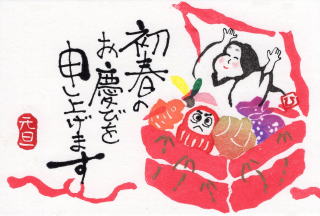 初春の
お慶びを
申し上げます
元旦